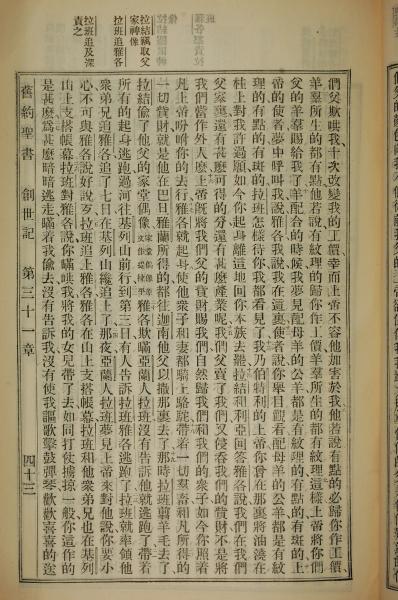 們父欺哄我十次改變我的工價幸而上帝不容他加害於我他若說有點的必歸你作工價
羊羣所生的都有點他若說有紋理的歸你作工價羊羣所生的都有紋理這樣上帝將你們
父的羊羣賜給我了羊配合的時候我夢見配母羊的公羊都是有紋理的有點的有斑的上
帝的使者夢中呼叫我說雅各我說我在這裏使者說你舉目觀看配母羊的公羊都是有紋
理的有點的有斑的拉班怎樣待你我都看見了我乃伯特利的上帝你曾在那裏將油澆在
柱上對我許過願如今你起身離這地回你本族去罷拉結和利亞回答雅各說我們在我們
父家裏還有甚麼可得的分還有甚麼產業呢我們父賣了我們又侵吞我們的貲財不是將
我們當作外人麼上帝旣將我們父的貲財賜我們自然歸我們和我們的衆子如今你照着
凡上帝吩咐你的去行雅各就起身使他衆子和妻都騎上駱駝帶着一切羣畜和凡所得的
一切貲財就是他在巴旦雅蘭所得的都往迦南他父以撒那裏去了那時拉班翦羊毛去了
拉結偷了他父的家堂偶像雅各欺瞞亞蘭人拉班沒有告訴他就逃跑了帶着
所有的起身逃跑過河往基列山前行到第三日有人告訴拉班雅各逃跑了拉班就率領他
衆弟兄追雅各追了七日在基列山纔追上了那夜亞蘭人拉班夢見上帝來對他說你要小
心不可與雅各說好說歹拉班追上雅各雅各在山上支搭帳幕拉班和他衆弟兄也在基列
山上支搭帳幕拉班對雅各說你瞞哄我將我的女兒帶了去如同打仗擄掠一般你這作的
是甚麼爲甚麼暗暗逃走瞞着我偷去沒有告訴我沒有使我謳歌擊鼓彈琴歡歡喜喜的送
舊約聖書 創世記 第三十一章 四十三
拉結竊取父
家神像
拉班追及雅各
拉班追及深
責之